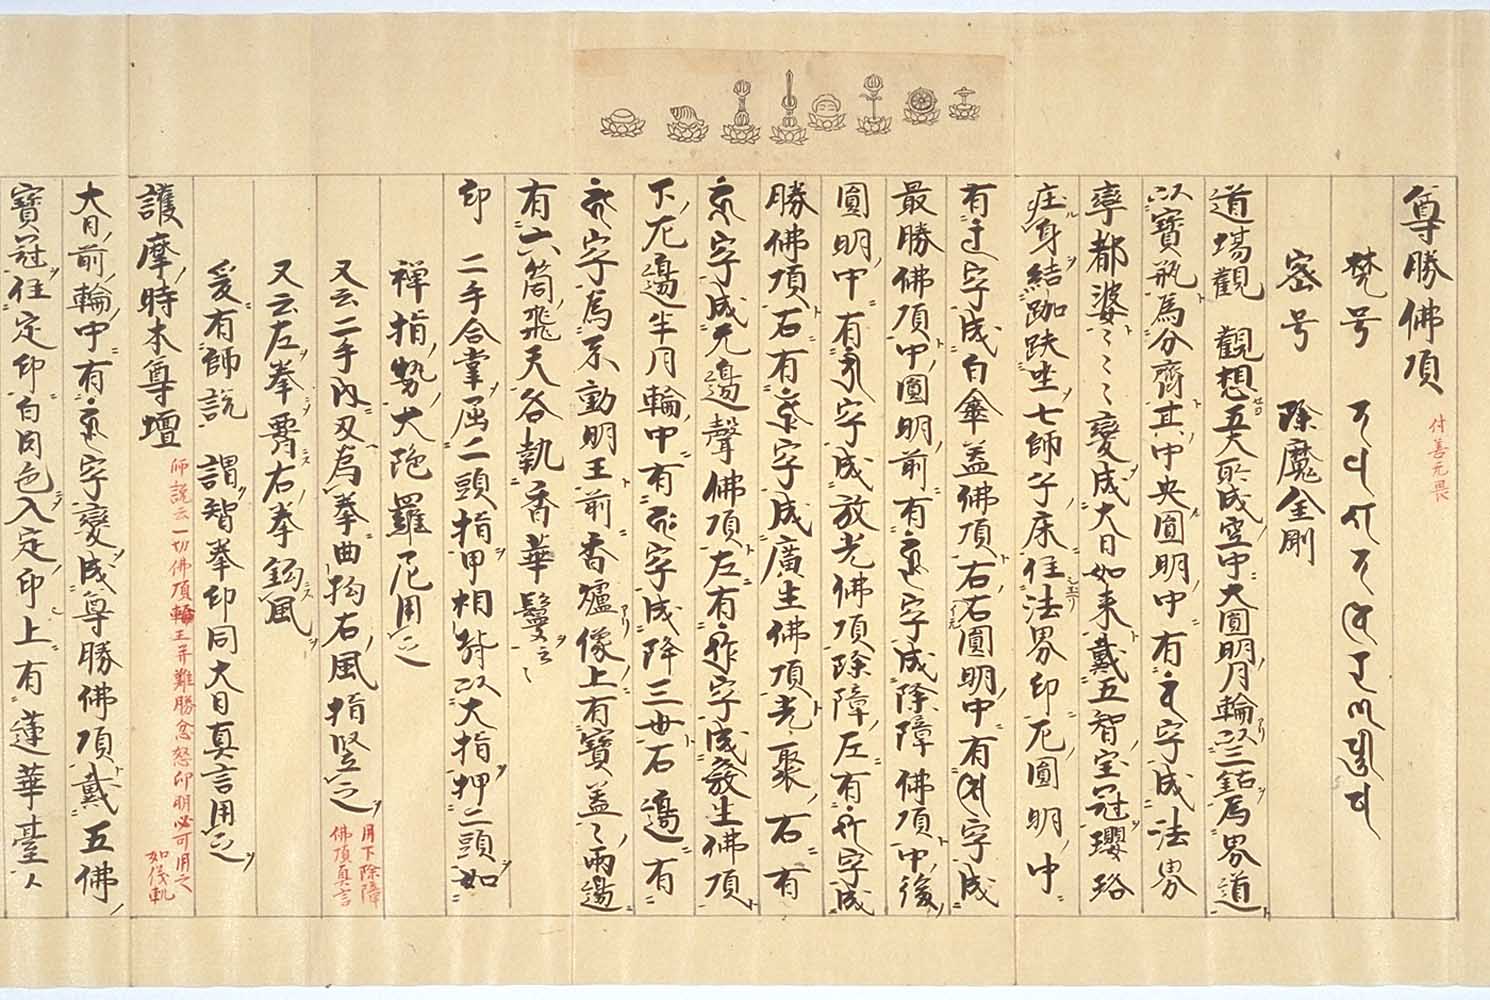 尊勝佛頂
付善无畏
梵号
密号 除魔金剛
道場觀 觀想五大所成空中大圓明月輪以三鈷為界道
以寶瓶為分齊其中央圓明中有字成法界
率都婆〻〻〻變成大日如来戴五智宝冠瓔珞
庄身結跏趺坐七師子床住法界印左圓明中
有字成白傘蓋佛頂右右圓明中有字成
最勝佛頂中圓明前有字成除障佛頂中後
圓明中有字成放光佛頂除障左有字成
勝佛頂右有字成廣生佛頂光聚右有
字成无邊聲佛頂左有字成發生佛頂
下左邊半月輪中有字成降三世右邊有
字為不動明王前香爐像上有寶蓋〻兩邊
有六箇飛天各執香華鬘云〻
印 二手合掌屈二頭指甲相背以大指押二頭如
禅指勢大陁羅尼用之
又云二手内叉為拳曲鈎右風指竪之
月下除障
佛頂真言
又云左拳覆右拳鈎風
爰有師説 謂智拳印同大日真言用之
護摩時本尊壇
師説云一切佛頂輪王并難勝忿怒印明必可用之
如儀軌
大日前輪中有字變成尊勝佛頂戴五佛
寶冠住定印白肉色入定印上有蓮華臺